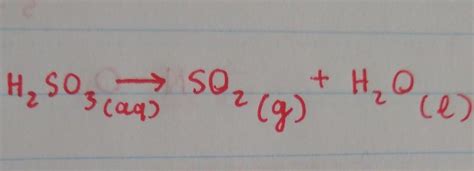 H₂SO₃(aq) ⟶ SO₂(g) + H₂O(l)